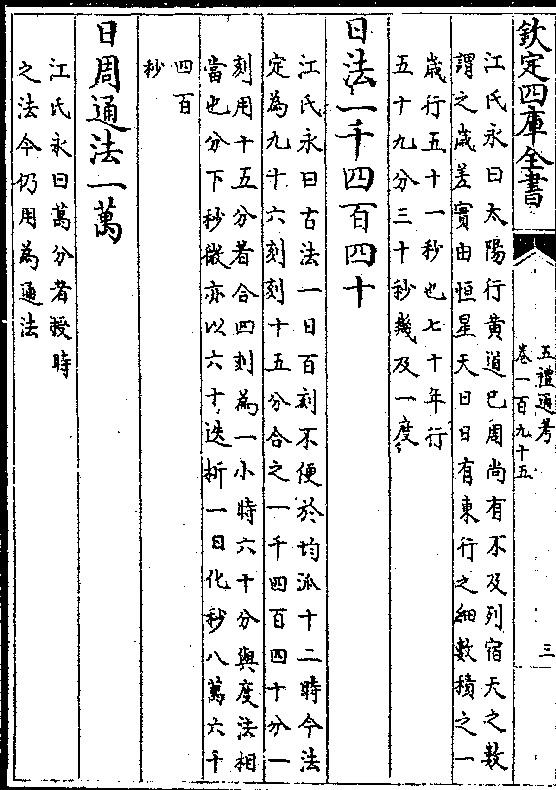 欽定四庫全書
五禮通考
卷一百九十五
三
江氏永曰太陽行黄道已周尚有不及列宿天之數
謂之歲差實由恒星天日日有東行之細數積之一
歲行五十一秒也七十年行
五十九分三十秒幾及一度
日法一千四百四十
江氏永曰古法一日百刻不便於均派十二時今法
定為九十六刻刻十五分合之一千四百四十分一
刻用十五分者合四刻為一小時六十分與度法相
當也分下秒微亦以六十迭析一日化秒八萬六千
四百
秒
日周通法一萬
江氏永曰萬分者授時
之法今仍用為通法